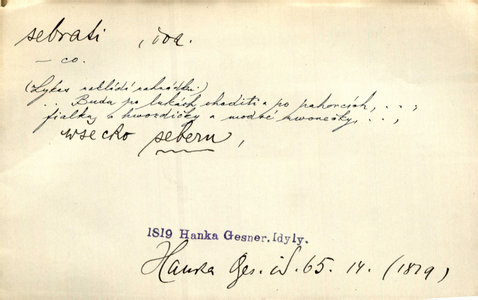 sebrati, dok.
— co.
(Lykas zakládá zahrádku)
.. Budu po lukách choditi a po pahorcách, ..,
fialky, b hwozdičky a modré zwonečky, ..,
wsecko seberu,
1819 Hanka Gesner. Idyly.
Hanka Ges. id. 65. 14. (1819)